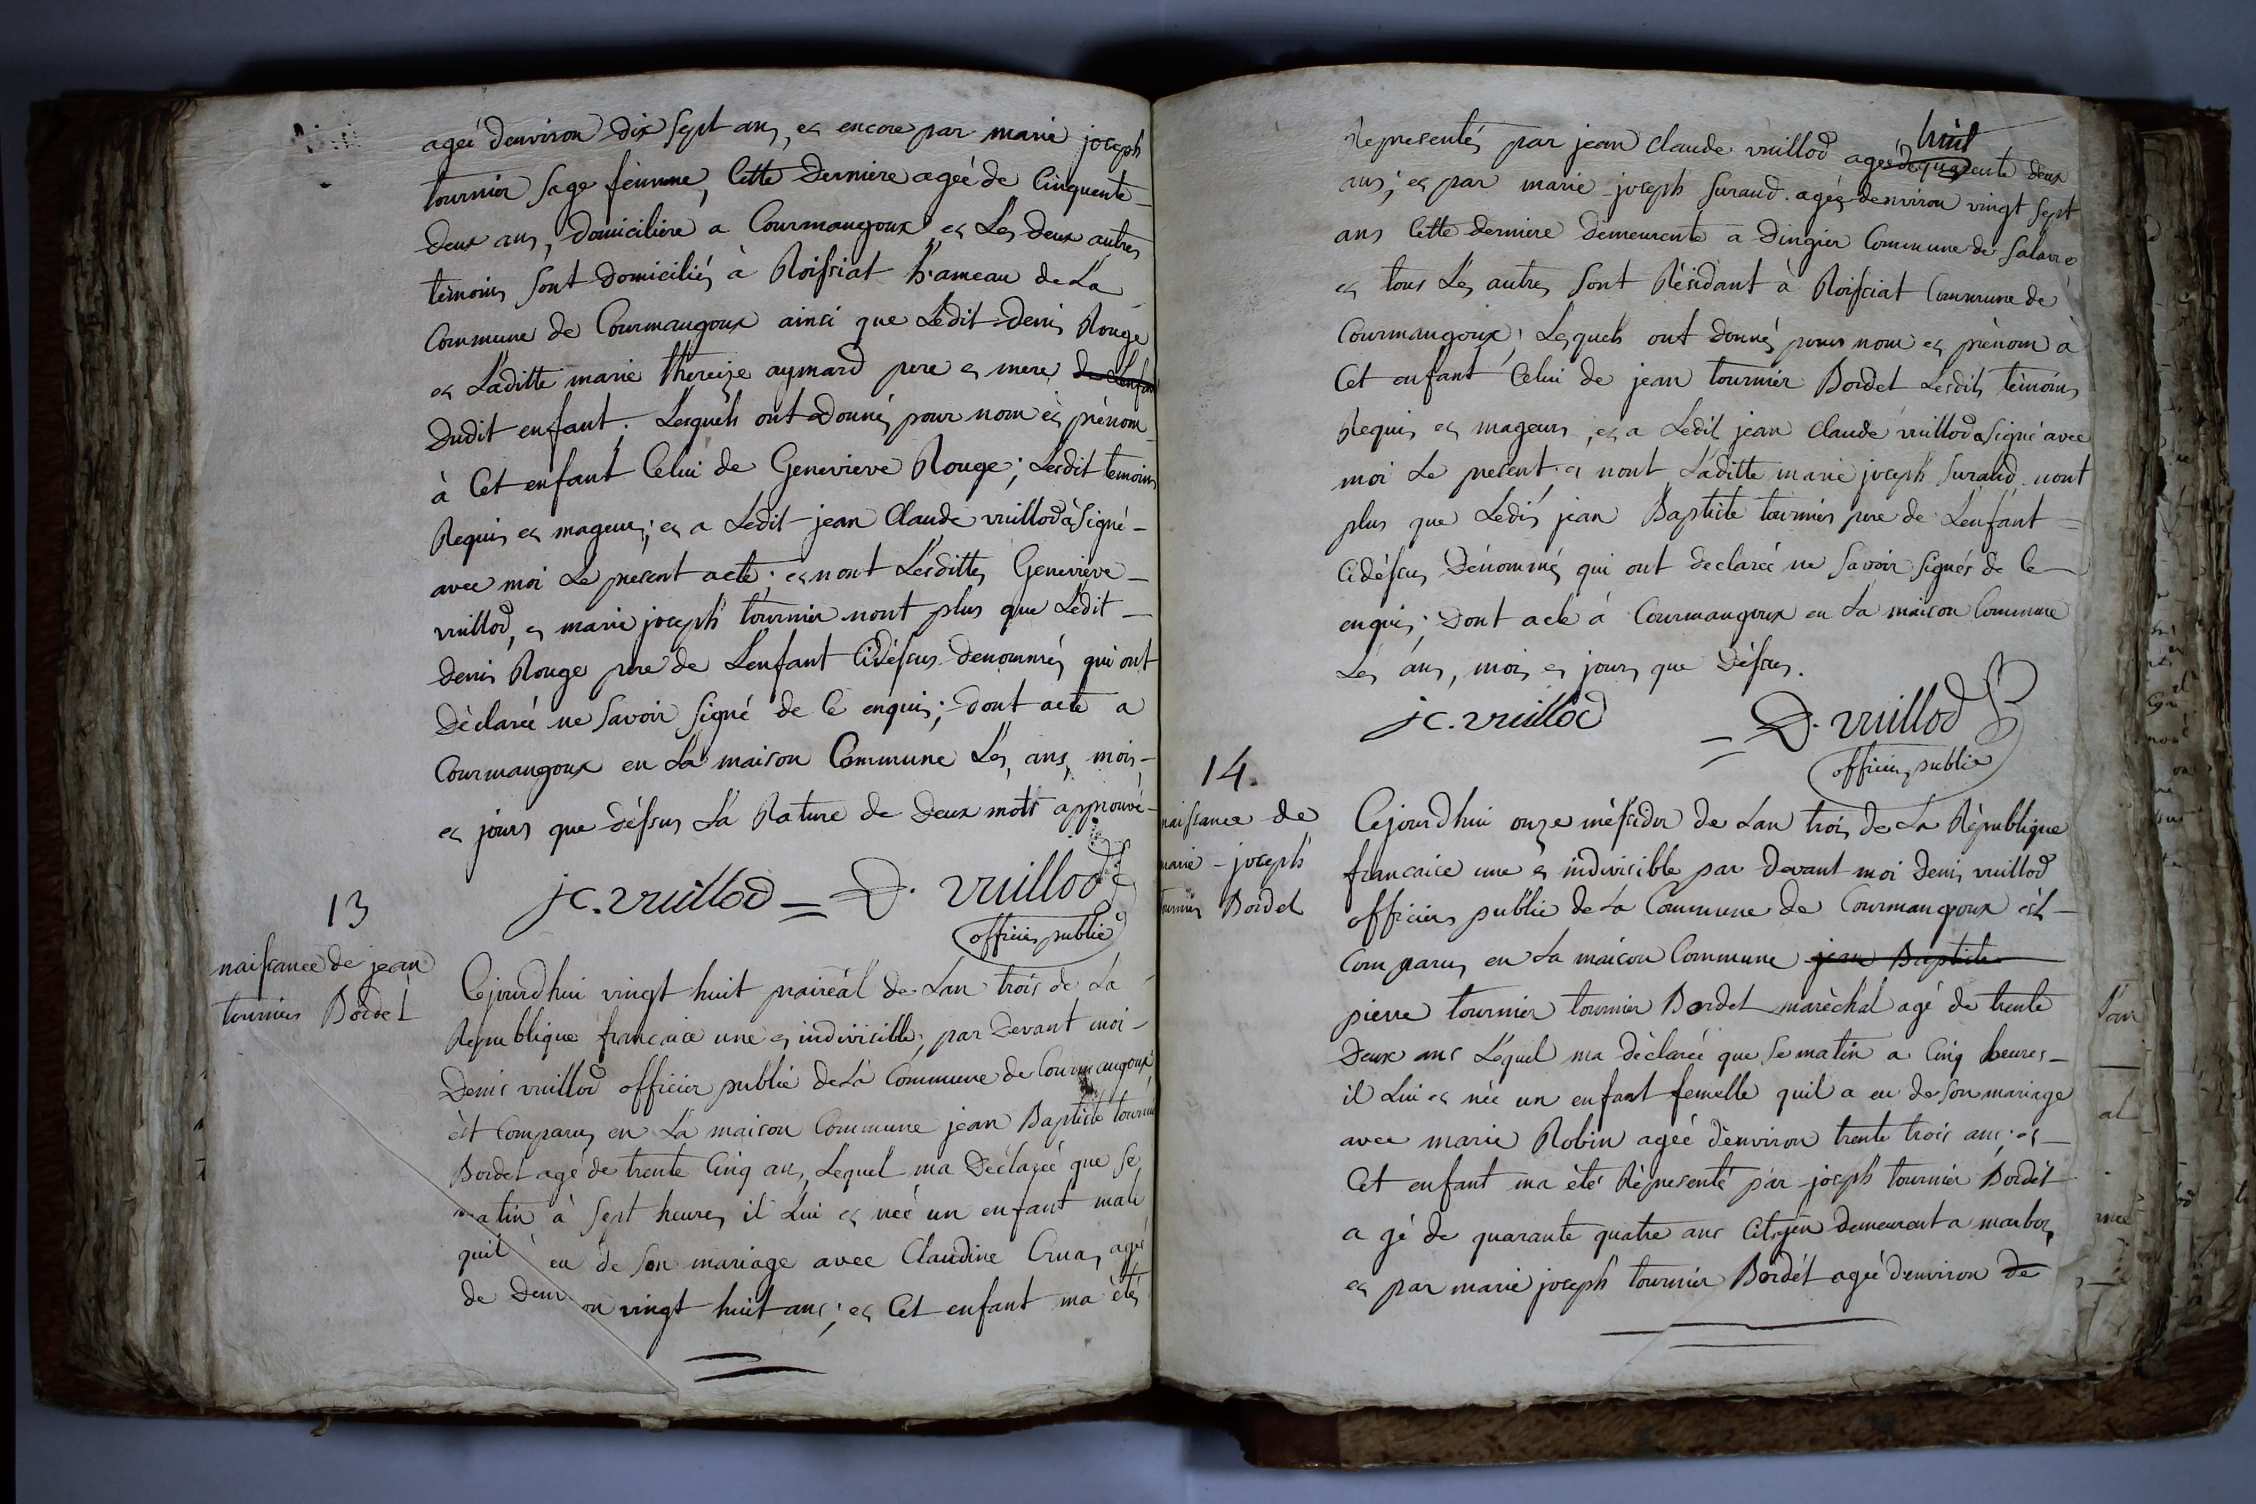 agée denviron dix sept ans, et encore par marie joseph
tournier sage femme, Cette derniere agée de Cinquente
deux ans, domiciliere a Courmangoux et Les deux autres
temoins sont domiciliés à Roissiat h'ameau de La
Commune de Courmangoux ainsi que Ledit denis Rouge
et Laditte marie thereize aymard pere et mere de Lenfan
dudit enfant. Lesquels ont donnés pour nom et prénom
à Cet enfant Celui de Genevieve Rouge; Lesdit temoins
Requis et mageur; et a Ledit jean Claude vuillod à signé
avec moi Le present acte; et nont Lesdittes Genevieve
vuillod, et marie joseph tournier nont plus que Ledit
denis Rouge pere de Lenfant Cidéssus denommés qui ont
déclarée ne savoir signé de Ce enquis; dont acte a
Courmangoux en La maison Commune Les, ans, mois,
et jours que déssus La Rature de deux mots approuvé
jc. vuillod = D. vuillod
officier public
13
naissance de jean
tournier Bordet
Cejourdhui vingt huit prairéal de Lan trois de La
Republique francaice une et indivisible, par devant moi
Denis vuillod officier public de La Commune de Courmangoux
èst Comparus en La maison Commune jean Baptiste tournier
Bordet agé de trente Cinq ans, Lequel ma déclarée que se
matin à sept heures il Lui et née un enfant male
quil eu de son mariage avec Claudine Cruas agée
de denv on vingt huit ans; et Cet enfant ma étés
Representés par jean Claude vuillod agée de quarente huit deux
ans; et par marie joseph Suraud agée denviron vingt sept
ans Cette derniere demeurente a dingier Commune de Salavre
et tous Les autres sont Résidant à Roissiat Commune de
Courmangoux; Lesquels ont donnés pour nom et prénom à
Cet enfant Celui de jean tournier Bordet Lesdits témoins
Requis et mageurs, et a Ledit jean Claude vuillod a signé avec
moi Le present. et nont Laditte marie joseph Suraud nont
plus que Ledit jean Baptiste tournier pere de Lenfant
Cidéssus dénommés qui ont declarée ne savoir signés de Ce
enquis; Dont acte à Courmangoux en La maison Commune
Les ans, mois et jours que déssus.
jc. vuillod = D. vuillod
officier public
14.
naissance de
marie joseph
tournier Bordet
Cejourdhui onze méssidor de Lan trois de La République
francaice une et indivicible par devant moi Denis vuillod
officier public de La Commune de Courmangoux ést
Comparus en La maison Commune jean Baptiste
pierre tournier tournier Bordet maréchal agé de trente
deux ans Lequel ma déclarée que se matin a Cinq heures
il Lui et née un enfant femelle quil a eu de son mariage
avec marie Robin agée denviron trente trois ans; et
Cet enfant ma été Répresenté par joseph tournier Bordet
a gé de quarante quatre ans Citoyen demeurent a marboz
et par marie joseph tournier Bordét agée denviron de